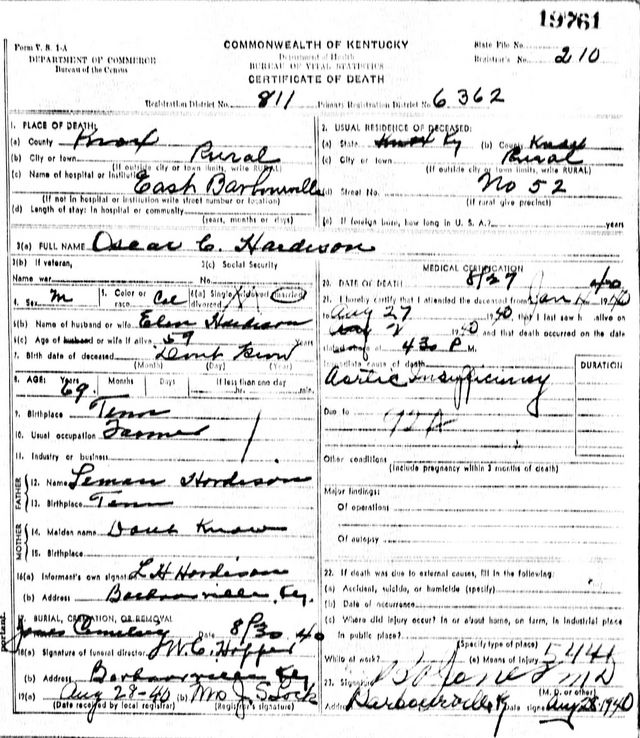 19761
Form V. S. 1-A
DEPARTMENT OF COMMERCE
Bureau of the Census
COMMONWEALTH OF KENTUCKY
Department of Health
BUREAU OF VITAL STATISTICS
CERTIFICATE OF DEATH
State File No.
Registrar's No. 210
Registration District No. 811 Primary Registration District No. 6362
1. PLACE OF DEATH:
(a) County Knox
(b) City or town Rural
(If outside city or town limits, write RURAL)
(c) Name of hospital or institution East Barbourville
(If not in hospital or institution write street number or location)
(d) Length of stay: In hospital or community
(years, months or days)
2. USUAL RESIDENCE OF DECEASED:
(a) State Ky (b) County Knox
(c) City or town Rural
(If outside city or town limits, write RURAL)
(d) Street No. No 52
(If rural give precinct)
(e) If foreign born, how long in U. S. A.? years
3(a) FULL NAME Oscar C. Hardison
3(b) If veteran,
Name war
3(c) Social Security
No.
4. Sex M 5. Color or race Col 6(a) Single, widowed, married, divorced
6(b) Name of husband or wife Ellen Hardison
6(c) Age of husband or wife if alive 59 years
7. Birth date of deceased Dont Know
(Month) (Day) (Year)
8. AGE: Years Months Days If less than one day
69 hr. min.
9. Birthplace Tenn
10. Usual occupation Farmer
11. Industry or business
FATHER
12. Name Leman Hardison
13. Birthplace Tenn
MOTHER
14. Maiden name Dont Know
15. Birthplace
16(a) Informant's own signature L H Hardison
(b) Address Barbourville, Ky.
17. BURIAL, CREMATION, OR REMOVAL
Jones Cemetery Date 8/30 40
18(a) Signature of funeral director W. E. Hopper
(b) Address Barbourville Ky
19(a) Aug 28-40 (b) Mrs J S Lock
(Date received by local registrar) (Registrar's signature)
MEDICAL CERTIFICATION
20. DATE OF DEATH 8/27 1940
21. I hereby certify that I attended the deceased from Jan 1940
Aug 27 1940 that I last saw h alive on
1940 and that death occurred on the date
stated above at 430 P. M.
Immediate cause of death
Aortic insufficiency
DURATION
Due to 92A
Other conditions
(Include pregnancy within 3 months of death)
Major findings:
Of operations
Of autopsy
22. If death was due to external causes, fill in the following:
(a) Accident, suicide, or homicide (specify)
(b) Date of occurrence
(c) Where did injury occur? In or about home, on farm, in industrial place
In public place?
(Specify type of place)
While at work? (e) Means of Injury 5441
23. Signature M D
(M. D. or other)
Address Barbourville Ky Date signed Aug 28 1940